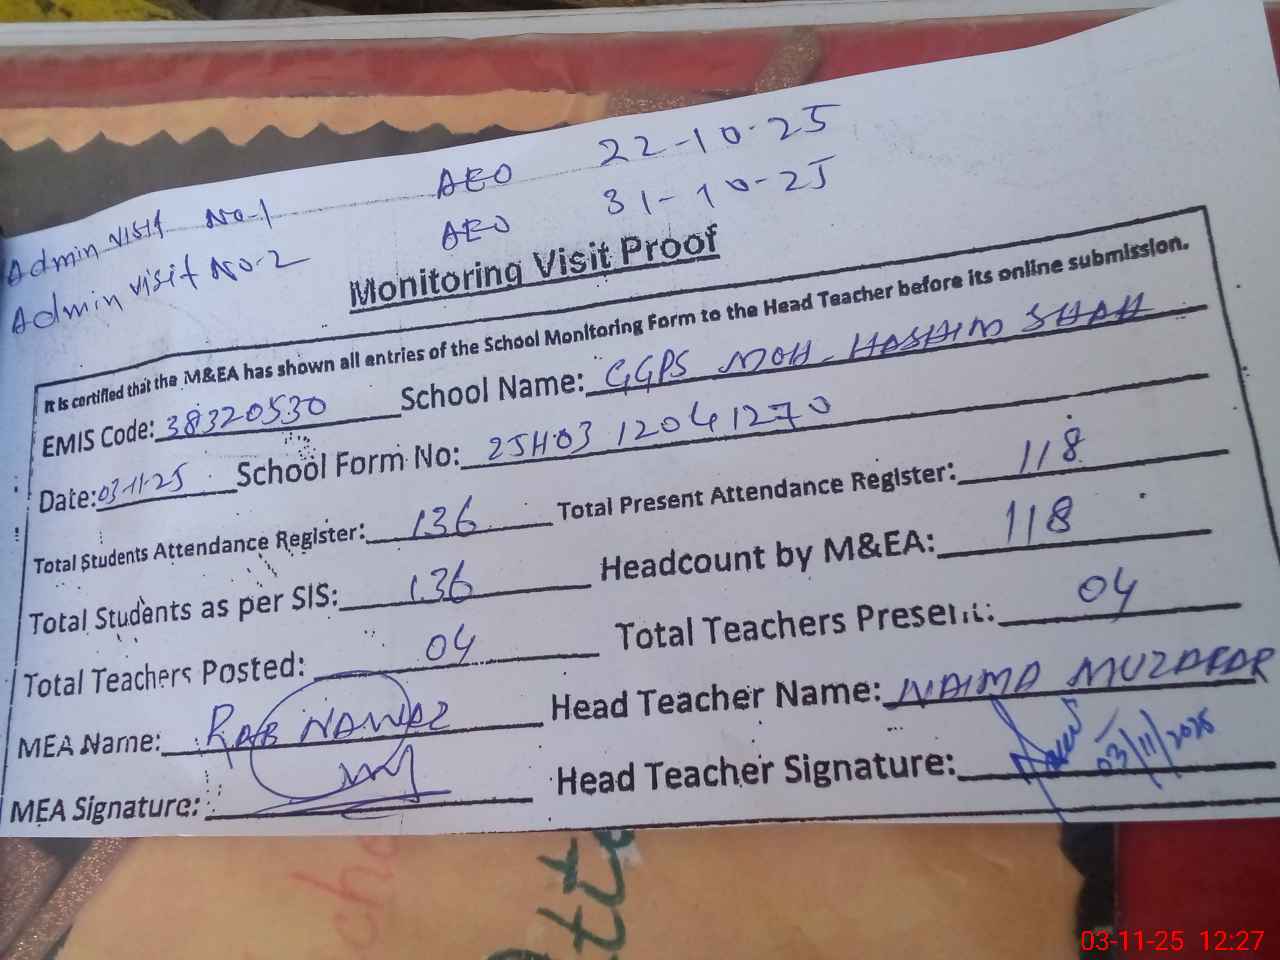 Admin visit No-1 AEO 22-10-25
Admin visit No-2 AEO 31-10-25
Monitoring Visit Proof
It is certified that the M&EA has shown all entries of the School Monitoring Form to the Head Teacher before its online submission.
EMIS Code: 38320530 School Name: GGPS MOH-HASHIM SHAH
Date: 03-11-25 School Form No: 25H0312041270
Total Students Attendance Register: 136 Total Present Attendance Register: 118
Total Students as per SIS: 136 Headcount by M&EA: 118
Total Teachers Posted: 04 Total Teachers Present: 04
MEA Name: RAB NAWAZ Head Teacher Name: NAIMA MUZAFAR
MEA Signature: Head Teacher Signature: 03/11/2025
03-11-25 12:27